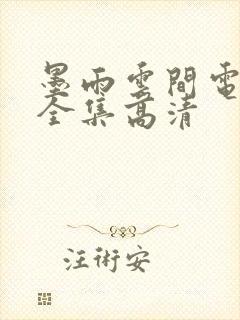 墨雨雲間電
全集高清
汪術安